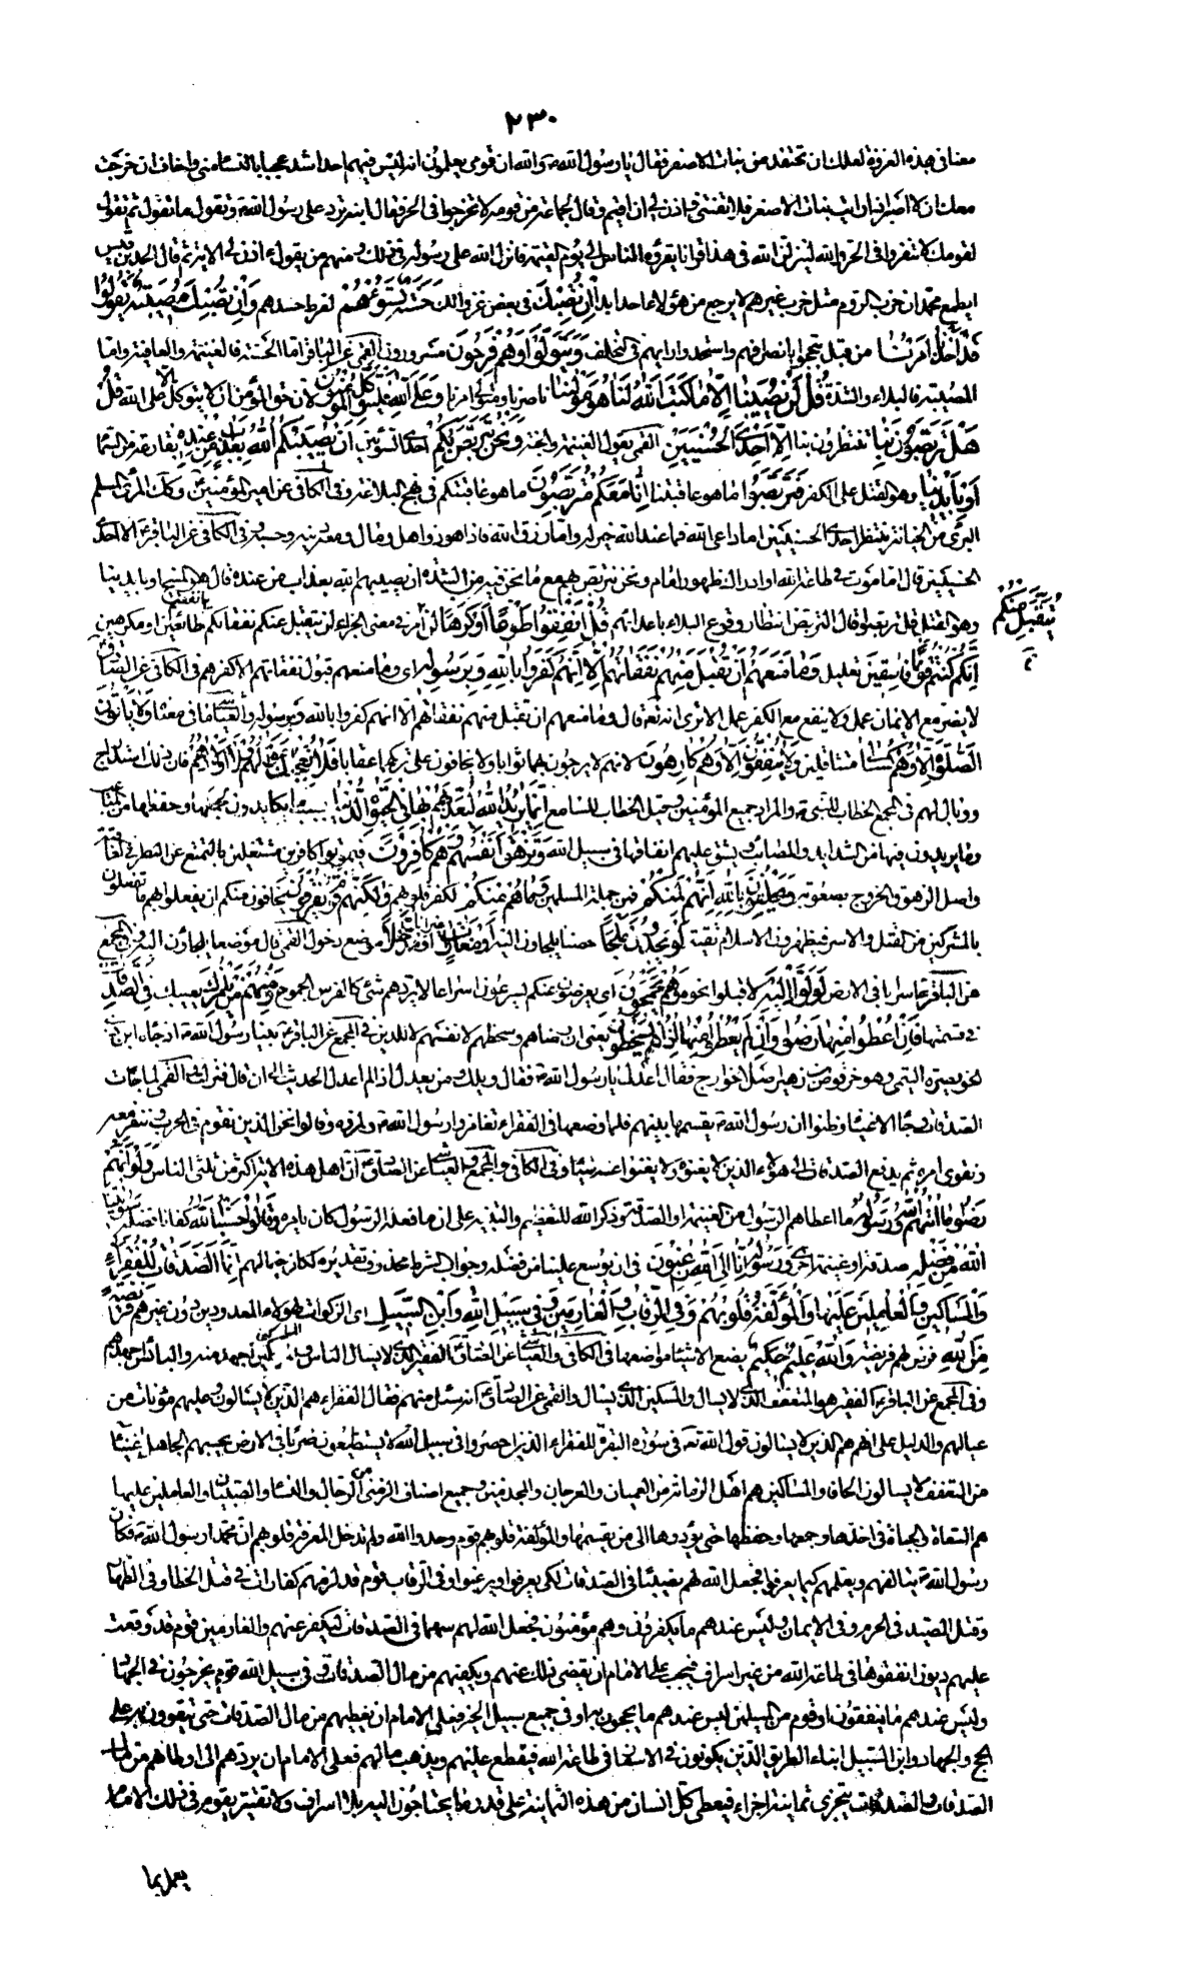 ٢٣٠
معنا في هذه الغزوة لعلك ان تحتفد من بنات الاصفر فقال يا رسول الله ص والله ان قومي يعلمون انه ليس فيهم احد اشد عجبا بالنساء مني واخاف ان خرجت
معك ان لا اصبر اذا رايت بنات الاصفر فلا تفتني فاذن لي ان اقيم وقال لجماعة من قومه لا تخرجوا في الحر فقال ابنه ترد على رسول الله ص وتقول ما تقول ثم تقول
لقومك لا تنفروا في الحر والله لينزلن الله في هذا قرانا يقرؤه الناس الى يوم القيمة فانزل الله على رسوله في ذلك ومنهم من يقول ائذن لي الاية ثم قال الجد بن قيس
ايطمع محمد ان حرب الروم مثل حرب غيرهم لا يرجع من هؤلاء احد ابدا ان تصبك في بعض غزواتك حسنة تسؤهم لفرط حسدهم وان تصبك مصيبة يقولوا
قد اخذنا امرنا من قبل تبجحوا بانصرافهم واستحمدوا رايهم في التخلف ويتولوا وهم فرحون مسرورون القمي عن الباقر اما الحسنة فالغنيمة والعافية واما
المصيبة فالبلاء والشدة قل لن يصيبنا الا ما كتب الله لنا هو مولينا ناصرنا ومتولي امرنا وعلى الله فليتوكل المؤمنون لان حق المؤمن ان لا يتوكل الا على الله قل
هل تربصون بنا تنتظرون بنا الا احدى الحسنيين القمي يقول الغنيمة والجنة ونحن نتربص بكم احدى السوئيين ان يصيبكم الله بعذاب من عنده بقارعة من السماء
او بايدينا وهو القتل على الكفر فتربصوا ما هو عاقبتنا انا معكم متربصون ما هو عاقبتكم في نهج البلاغة وفي الكافي عن امير المؤمنين ع وكذلك المرء المسلم
البرئ من الخيانة ينتظر احدى الحسنيين اما داعي الله فما عند الله خير له واما رزق الله فاذا هو ذو اهل ومال ومعه دينه وحسبه وفي الكافي عن الباقر ع الا احدى
الحسنيين قال اما موت في طاعة الله او ادراك ظهور امام ونحن نتربص بهم مع ما نحن فيه من الشدة ان يصيبهم الله بعذاب من عنده قال هو المسخ او بايدينا
وهو القتل قل تربصوا وقال التربص انتظار وقوع البلاء باعدائهم قل انفقوا طوعا او كرها لن امر في معنى الخبر اي لن يتقبل منكم نفقاتكم طائعين او مكرهين
يتقبل منكم
انكم كنتم قوما فاسقين تعليل وما منعهم ان تقبل منهم نفقاتهم الا انهم كفروا بالله وبرسوله اي وما منعهم قبول نفقاتهم الا كفرهم في الكافي عن الصادق ع
لا يضر مع الايمان عمل ولا ينفع مع الكفر عمل الا ترى انه تع قال وما منعهم ان تقبل منهم نفقاتهم الا انهم كفروا بالله وبرسوله والعياشي ما في معناه ولا ياتون
الصلوة الا وهم كسالى متثاقلين ولا ينفقون الا وهم كارهون لانهم لا يرجون بهما ثوابا ولا يخافون على تركهما عقابا فلا تعجبك اموالهم ولا اولادهم فان ذلك استدراج
ووبال لهم في المجمع الخطاب للنبي ص والمراد جميع المؤمنين وقيل الخطاب للسامع انما يريد الله ليعذبهم بها في الحيوة الدنيا بسبب ما يكابدون لجمعها وحفظها من المتاعب
وما يريدون فيها من الشدايد والمصائب ويشق عليهم انفاقها في سبيل الله وتزهق انفسهم وهم كافرون فيموتوا كافرين مشتغلين بالتمتع عن النظر في العاقبة
واصل الزهوق الخروج بصعوبة ويحلفون بالله انهم لمنكم فمن جملة المسلمين وما هم منكم لكفر قلوبهم ولكنهم قوم يفرقون يخافون منكم ان يفعلوا بهم ما تفعلون
بالمشركين من القتل والاسر فيظهرون الاسلام تقية لو يجدون ملجا حصنا يلجاون اليه او مغارات غيرانا او مدخلا موضع دخول القمي قال موضعا يلجاون اليه وفي المجمع
عن الباقر ع اسرابا في الارض لولوا اليه لاقبلوا نحوه وهم يجمحون اي يعرضون عنكم يسرعون اسراعا لا يردهم شئ كالفرس الجموح ومنهم من يلمزك يعيبك في الصدقات
في قسمتها فان اعطوا منها رضوا وان لم يعطوا منها اذا هم يسخطون يعني ان رضاهم وسخطهم لانفسهم لا للدين في المجمع عن الباقر ع بينا رسول الله ص اذ جاءه ابن ذي
الخويصرة التيمي وهو حرقوص بن زهير اصل الخوارج فقال اعدل يا رسول الله ص فقال ويلك ومن يعدل اذا لم اعدل الحديث الى ان قال فنزلت القمي لما جائت
الصدقات وجاء الاغنياء وظنوا ان رسول الله ص يقسمها بينهم فلما وضعها في الفقراء تغامزوا رسول الله ص ولمزوه وقالوا نحن الذين نقوم في الحرب وننفر معه
ونقوي امره ثم يدفع الصدقات الى هؤلاء الذين لا يعينونه ولا يغنون عنه شيئا وفي الكافي والمجمع والعياشي عن الصادق ع ان اهل هذه الاية اكثر من ثلثي الناس ولو انهم
رضوا ما اتيهم الله ورسوله ما اعطاهم الرسول من الغنيمة او الصدقة وذكر الله للتعظيم والتنبيه على ان ما فعله الرسول كان بامره وقالوا حسبنا الله كفانا فضله سيؤتينا
الله من فضله صدقة او غنيمة اخرى ورسوله انا الى الله راغبون في ان يوسع علينا من فضله وجواب الشرط محذوف تقديره لكان خيرا لهم انما الصدقات للفقراء
والمساكين والعاملين عليها والمؤلفة قلوبهم وفي الرقاب والغارمين وفي سبيل الله وابن السبيل اي الزكوات لهؤلاء المعدودين دون غيرهم فريضة
من الله فرض لهم فريضة والله عليم حكيم يضع الاشياء مواضعها في الكافي والعياشي عن الصادق ع الفقير الذي لا يسال الناس والمسكين اجهد منه والبائس اجهدهم
وفي المجمع عن الباقر ع الفقير هو المتعفف الذي لا يسال والمسكين الذي يسال والقمي عن الصادق ع انه سئل منهم فقال الفقراء هم الذين لا يسالون وعليهم مؤنات من
عيالهم والدليل على انهم هم الذين لا يسالون قول الله تع في سورة البقرة للفقراء الذين احصروا في سبيل الله لا يستطيعون ضربا في الارض يحسبهم الجاهل اغنياء
من التعفف لا يسالون الحافا والمساكين هم اهل الزمانة من العميان والعرجان والمجذمين وجميع اصناف الزمنى من الرجال والنساء والصبيان والعاملين عليها
هم السعاة والجباة في اخذها وجمعها وحفظها حتى يؤدوها الى من يقسمها والمؤلفة قلوبهم قوم وحدوا الله ولم تدخل المعرفة قلوبهم ان محمدا رسول الله ص فكان
رسول الله ص يتالفهم ويعلمهم كيما يعرفوا فجعل الله لهم نصيبا في الصدقات لكي يعرفوا ويرغبوا وفي الرقاب قوم قد لزمهم كفارات في قتل الخطا وفي الظهار
وقتل الصيد في الحرم وفي الايمان وليس عندهم ما يكفرون وهم مؤمنون فجعل الله لهم سهما في الصدقات ليكفر عنهم والغارمين قوم قد وقعت
عليهم ديون انفقوها في طاعة الله من غير اسراف فيجب على الامام ان يقضي ذلك عنهم ويكفيهم من مال الصدقات وفي سبيل الله قوم يخرجون في الجهاد
وليس عندهم ما ينفقون او قوم من المسلمين ليس عندهم ما يحجون به او في جميع سبيل الخير فعلى الامام ان يعطيهم من مال الصدقات حتى يتقوون به على
الحج والجهاد وابن السبيل ابناء الطريق الذين يكونون في الاسفار في طاعة الله فيقطع عليهم ويذهب مالهم فعلى الامام ان يردهم الى اوطانهم من مال
الصدقات والصدقات تتجزى ثمانية اجزاء فيعطى كل انسان من هذه الثمانية على قدر ما يحتاجون اليه بلا اسراف ولا تقتير يقوم في ذلك الامام
يعمل بما